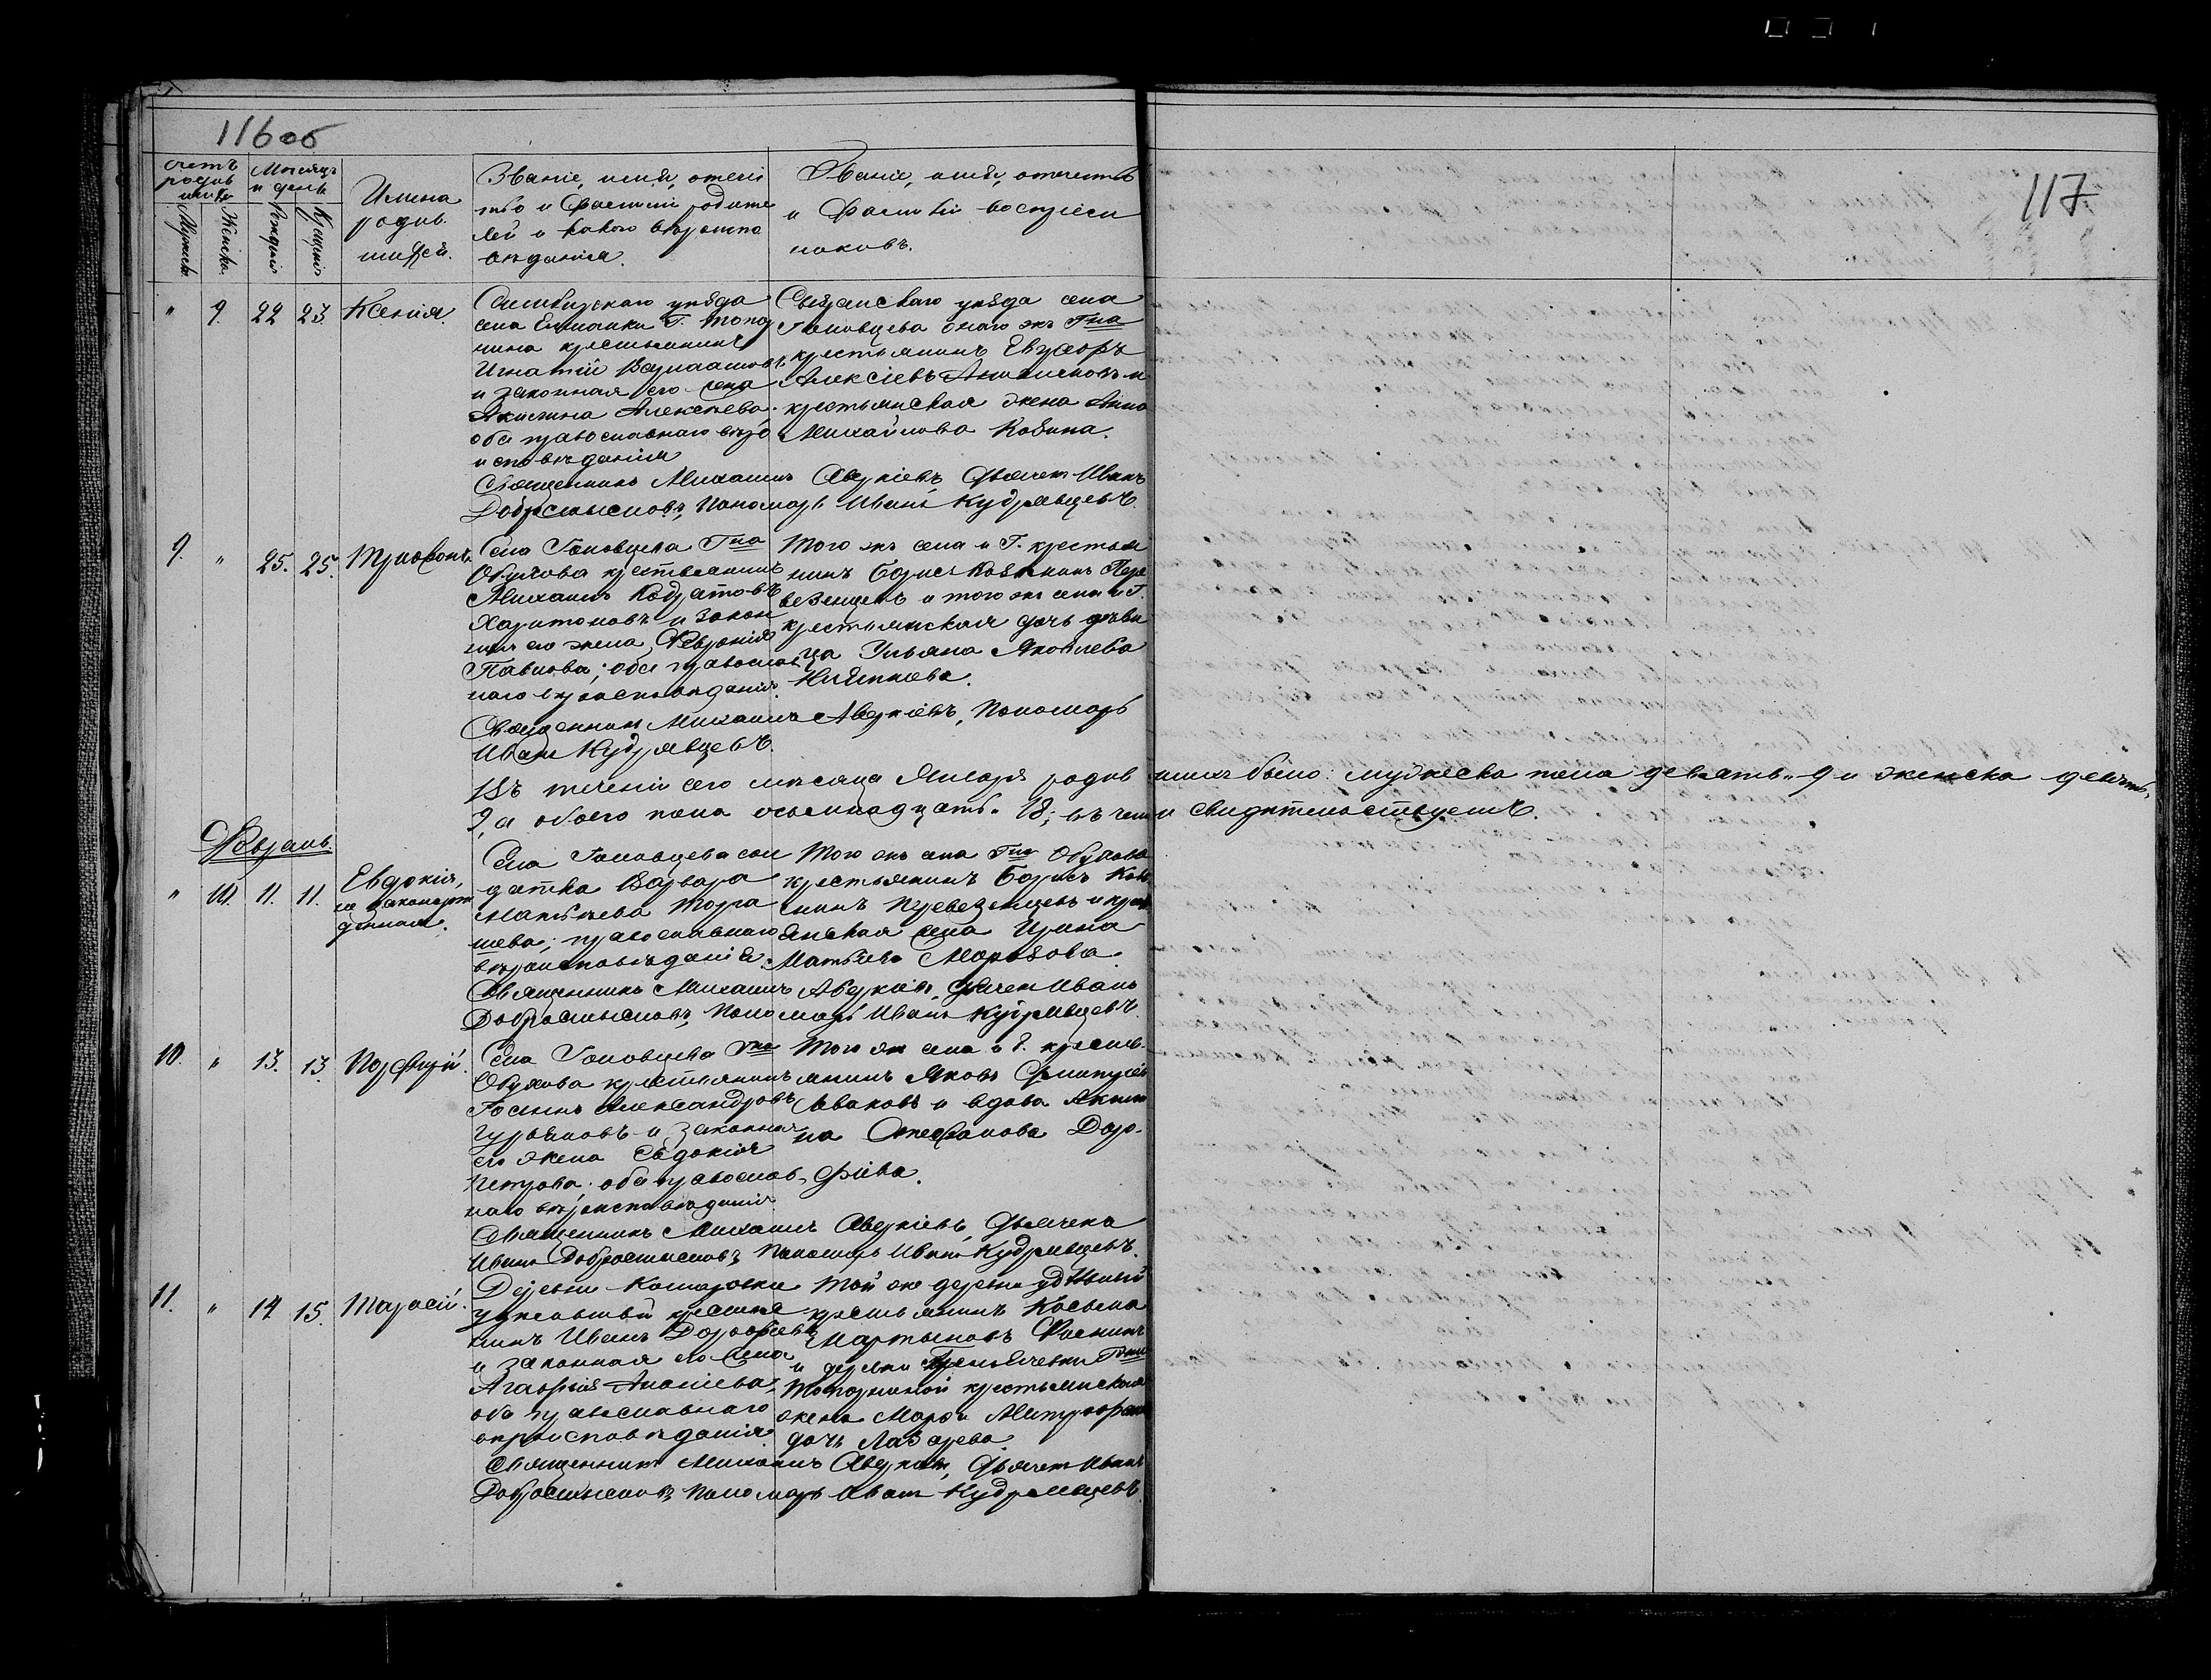 116об
117
Счетъ родив шихся
Мѣсяцъ и день
Мужеска
Женска
Рожденія
Крещенія
Имена
родив.
шихся.
Званіе, имя, отечес
тво и фамилія родите
лей и какого вѣроиспо
вѣданія.
Званіе, имя, отчество
и фамилія воспріем
никовъ.
" 9. 22 23 Ксенія.
Симбирскаго уѣзда
села Г. Топор
нина крестьянинъ
Игнатій
и законная его жена
Акилина Алексѣева
оба православнаго вѣро
исповѣданія
Сызранскаго уѣзда села
Головцева онаго же Гна
крестьянинъ
Алексіевъ и
крестьянская жена Анна
Михайлова Кобина.
Священникъ Михаилъ Аверкіевъ Дьячекъ Иванъ
Добросмысловъ, Пономарь Иванъ Кудрявцевъ.
9. " 25. 25. Трифонъ
Села Головцева Гна
Обухова крестьянинъ
Михаилъ Кодратовъ
Харитоновъ и закон
ная его жена Февронія
Павлова; оба православ
наго вѣроисповѣданія.
Того же села и Г. крестья
нинъ Борисъ Пере
везенцевъ и того же села и Г.
крестьянская дочь дѣви
ца Ульяна Яковлева
Священникъ Михаилъ Аверкіевъ, Пономарь
Иванъ Кудрявцевъ.
Въ теченіи сего мѣсяца Января родив шихъ было: мужеска пола девять „9 и женска девять,
9, а обоего пола осьмнадцать. 18; въ чемъ и свидѣтельствуемъ.
Февраль
" 10. 11. 11. Евдокія,
незаконорож
денная.
Села Головцева сол
датка Варвара
Матвѣева Тора
шева; православнаго
вѣроисповѣданія.
Того же села Гна Обухова
крестьянинъ Борисъ
Перевезенцевъ и крест
янская жена Ирина
Матвѣева Морозова.
Священникъ Михаилъ Аверкіевъ, Дьячекъ Иванъ
Добросмысловъ, Пономарь Иванъ Кудрявцевъ.
10. " 13. 13. Порфирій.
Села Головцева Гна
Обухова крестьянинъ
Александровъ
Гурьяновъ и законная
его жена Евдокія
Петрова. оба православ
наго вѣроисповѣданія
Того же села и Г. кресть
янинъ Яковъ
и вдова Акили
на Стефанова Доро
фіева.
Священникъ Михаилъ Аверкіевъ, Дьячекъ
Иванъ Добросмысловъ, Пономарь Иванъ Кудрявцевъ.
11. " 14 15. Тарасій.
Деревни Комаровки
крестья
нинъ Иванъ Дорофѣевъ
и законная его жена
Агафія
оба православнаго
вѣроисповѣданія.
Той же деревни удѣльный
крестьянинъ Косьма
Мартыновъ
и деревни Гжи
Топорниной крестьянская
жена Марфа Митрофан
дочь Лазарева.
Священникъ Михаилъ Аверкіевъ, Дьячекъ Иванъ
Добросмысловъ, Пономарь Иванъ Кудрявцевъ.